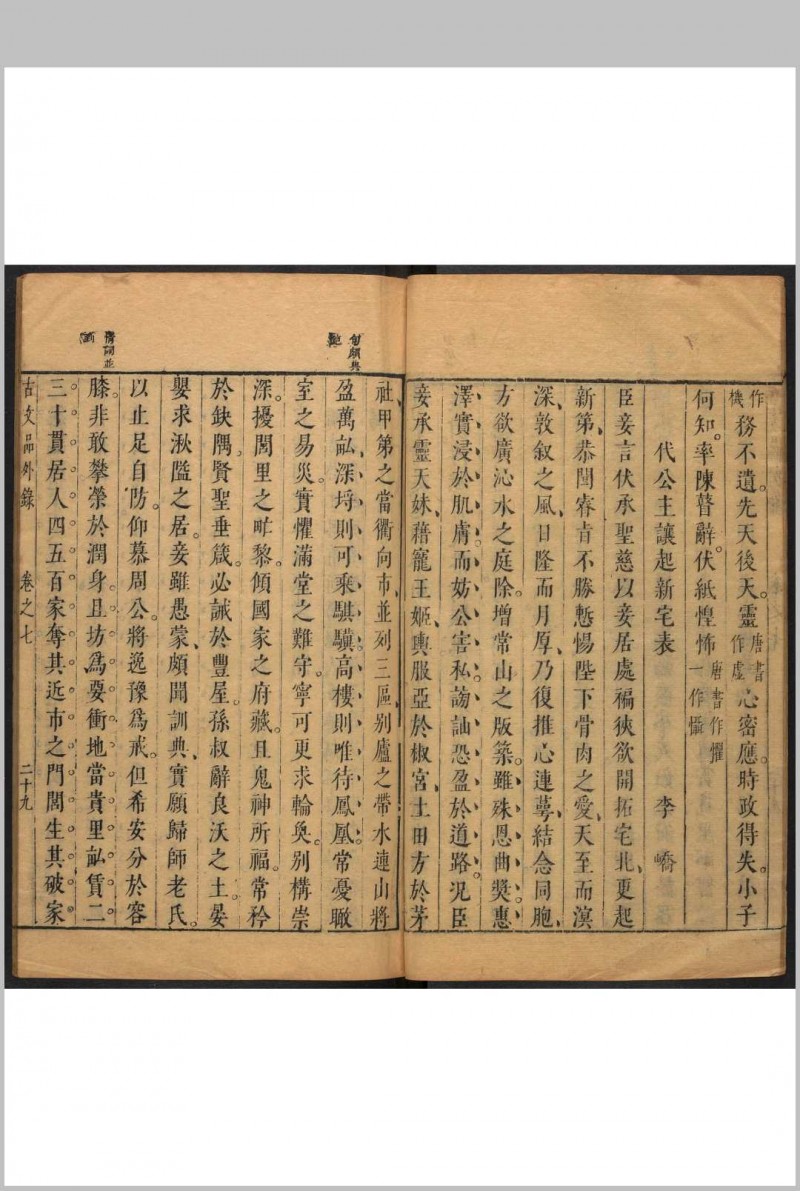 作機務不遺先天後天靈唐書作虛心密應時政得失小子
何知率陳瞽辭伏紙惶怖唐書作懼一作懾
代公主讓起新宅表　李嶠
臣妾言伏承聖慈以妾居處褊狹欲開拓宅北更起
新第恭聞睿旨不勝慙惕陛下骨肉之愛天至而濵
深敦叙之風日隆而月厚乃復推心連萼結念同胞
方欲廣沁水之庭除增常山之版築雖殊恩曲奬惠
澤實浸於肌膚而妨公害私謗訕恐盈於道路况臣
妾承靈天妹藉寵王姬輿服亞於椒宮土田方於茅
社甲第之當衢向市並列三區别廬之帶水連山將
盈萬畝深埒則可乘騏驥高樓則唯待鳳凰常憂瞰
室之易災實懼滿堂之難守寧可更求輪奐别構崇
深擾閭里之甿黎傾國家之府藏且鬼神所福常矜
於缺隅賢聖垂箴必誡於豐屋孫叔辭良沃之土晏
嬰求湫隘之居妾雖愚蒙頗聞訓典實願歸師老氏
以止足自防仰慕周公將逸豫爲戒但希安分於容
膝非敢攀榮於潤身且坊爲要衝地當貴里畝賃二
三十貫居人四五百家奪其近市之門閭生其破家
古文品外錄　卷之七　二十九
句頗典艷
情詞並